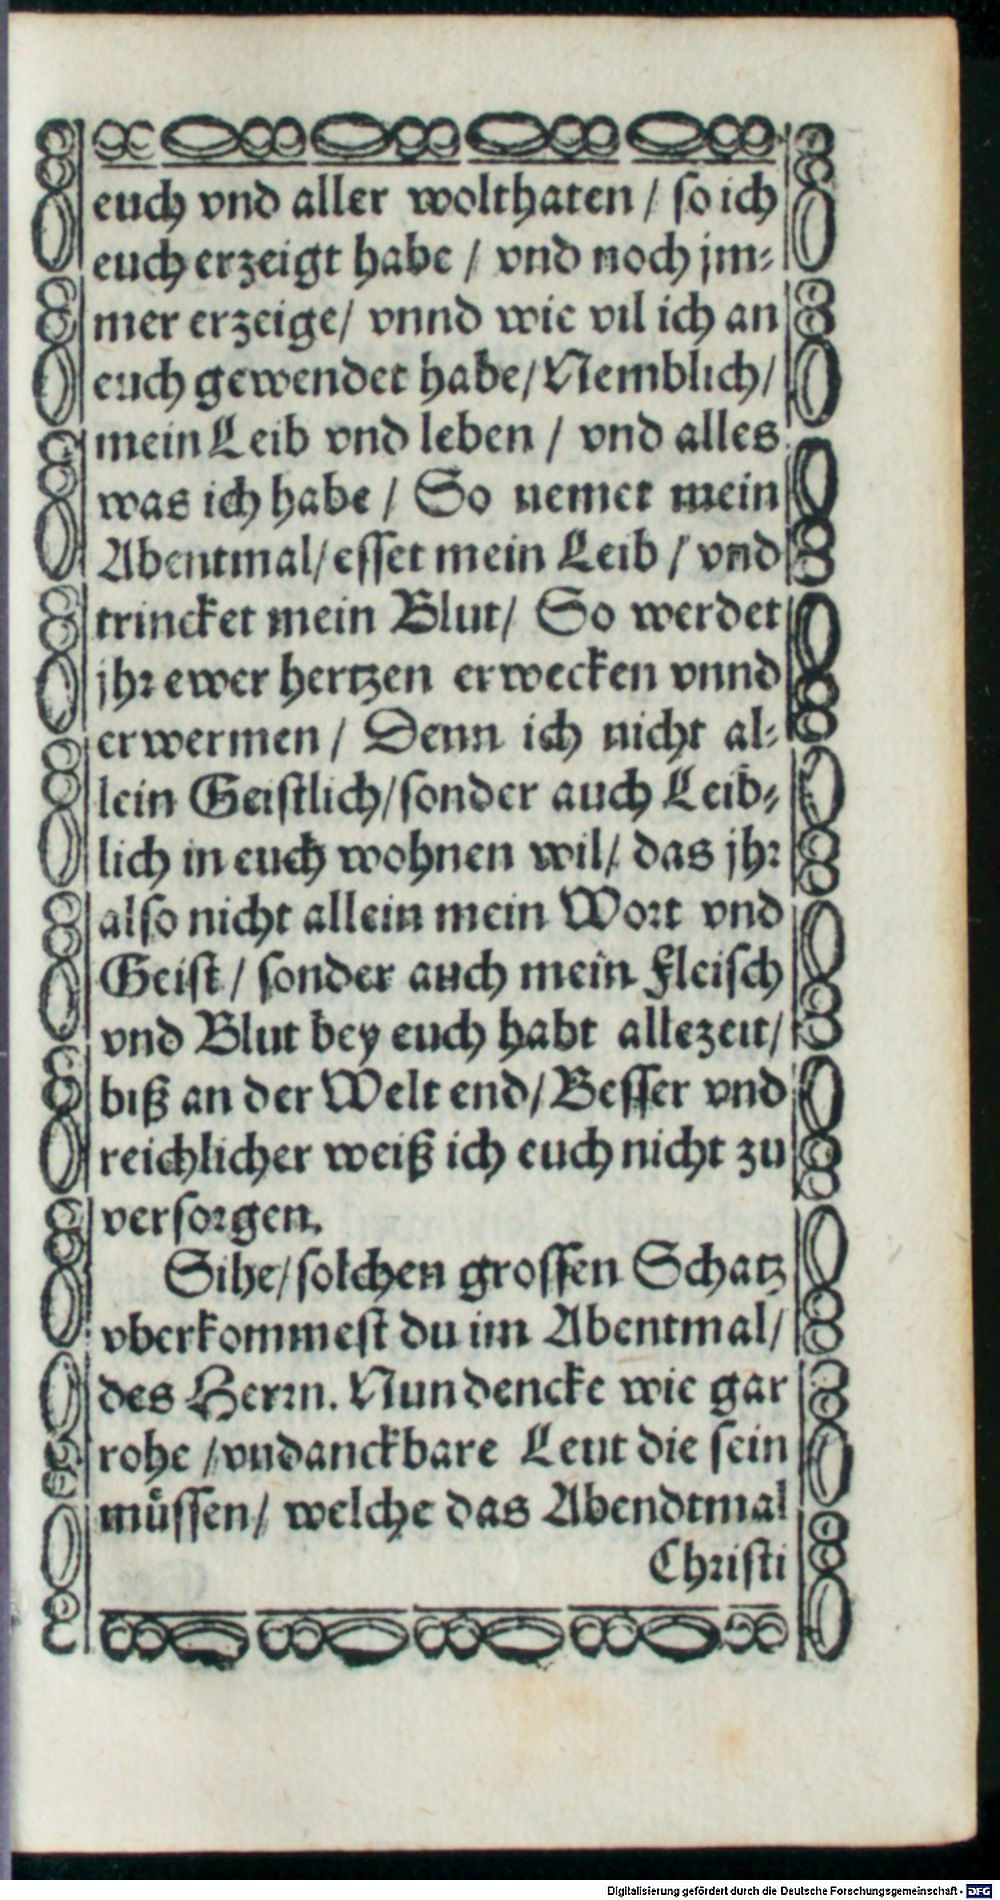 euch vnd aller wolthaten / so ich
euch erzeigt habe / vnd noch jm⸗
mer erzeige / vnnd wie vil ich an
euch gewendet habe / Nemblich /
mein Leib vnd leben / vnd alles
was ich habe / So nemet mein
Abentmal / esset mein Leib / vnd
trincket mein Blut / So werdet
jhr ewer hertzen erwecken vnnd
erwermen / Denn ich nicht al⸗
lein Geistlich / sonder auch Leib⸗
lich in euch wohnen wil / das jhr
also nicht allein mein Wort vnd
Geist / sonder auch mein Fleisch
vnd Blut bey euch habt allezeit /
biß an der Welt end / Besser vnd
reichlicher weiß ich euch nicht zu
versorgen.
Sihe / solchen grossen Schatz
vberkommest du im Abentmal /
des Herrn. Nun dencke wie gar
rohe / vndanckbare Leut die sein
müssen / welche das Abendtmal
Christi
Digitalisierung gefördert durch die Deutsche Forschungsgemeinschaft - DFG